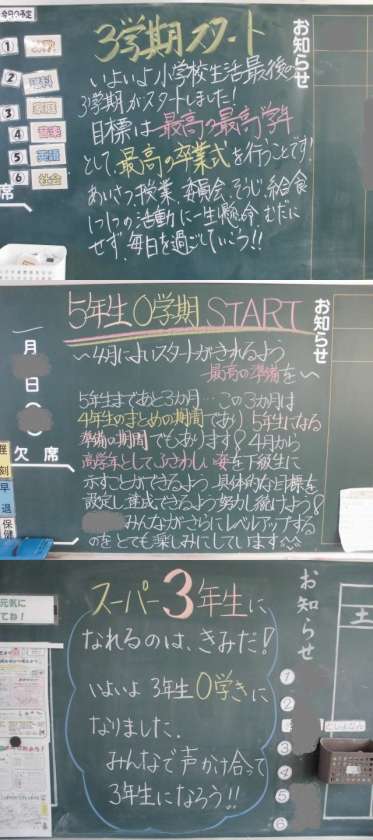 今日の予定
① 
② 理科
③ 家庭
④ 音楽
⑤ 英語
⑥ 社会
席
お知らせ
3学期スタート
いよいよ小学校生活最後の
3学期がスタートしました!
目標は最高の最高学年
として、最高の卒業式を行うことです!
あいさつ、授業、委員会、そうじ、給食
1つ1つの活動に一生懸命、むだに
せず、毎日を過ごしていこう!!
お知らせ
5年生0学期START
~4月によいスタートがきれるよう
最高の準備を~
5年生まであと3か月…この3か月は
4年生のまとめの期間であり、5年生になる
準備の期間でもあります!4月から
高学年としてふさわしい姿を下級生に
示すことができるよう、具体的な目標を
設定し達成できるよう努力し続けよう!
みんながさらにレベルアップする
のをとても楽しみにしています^^
一月
日
(
)
欠席
遅刻
早退
保健
お知らせ
土
①
②
③
④
⑤
⑥
スーパー3年生に
なれるのは、きみだ!
いよいよ3年生0学きに
なりました。
みんなで声かけ合って
3年生になろう!!
元気に